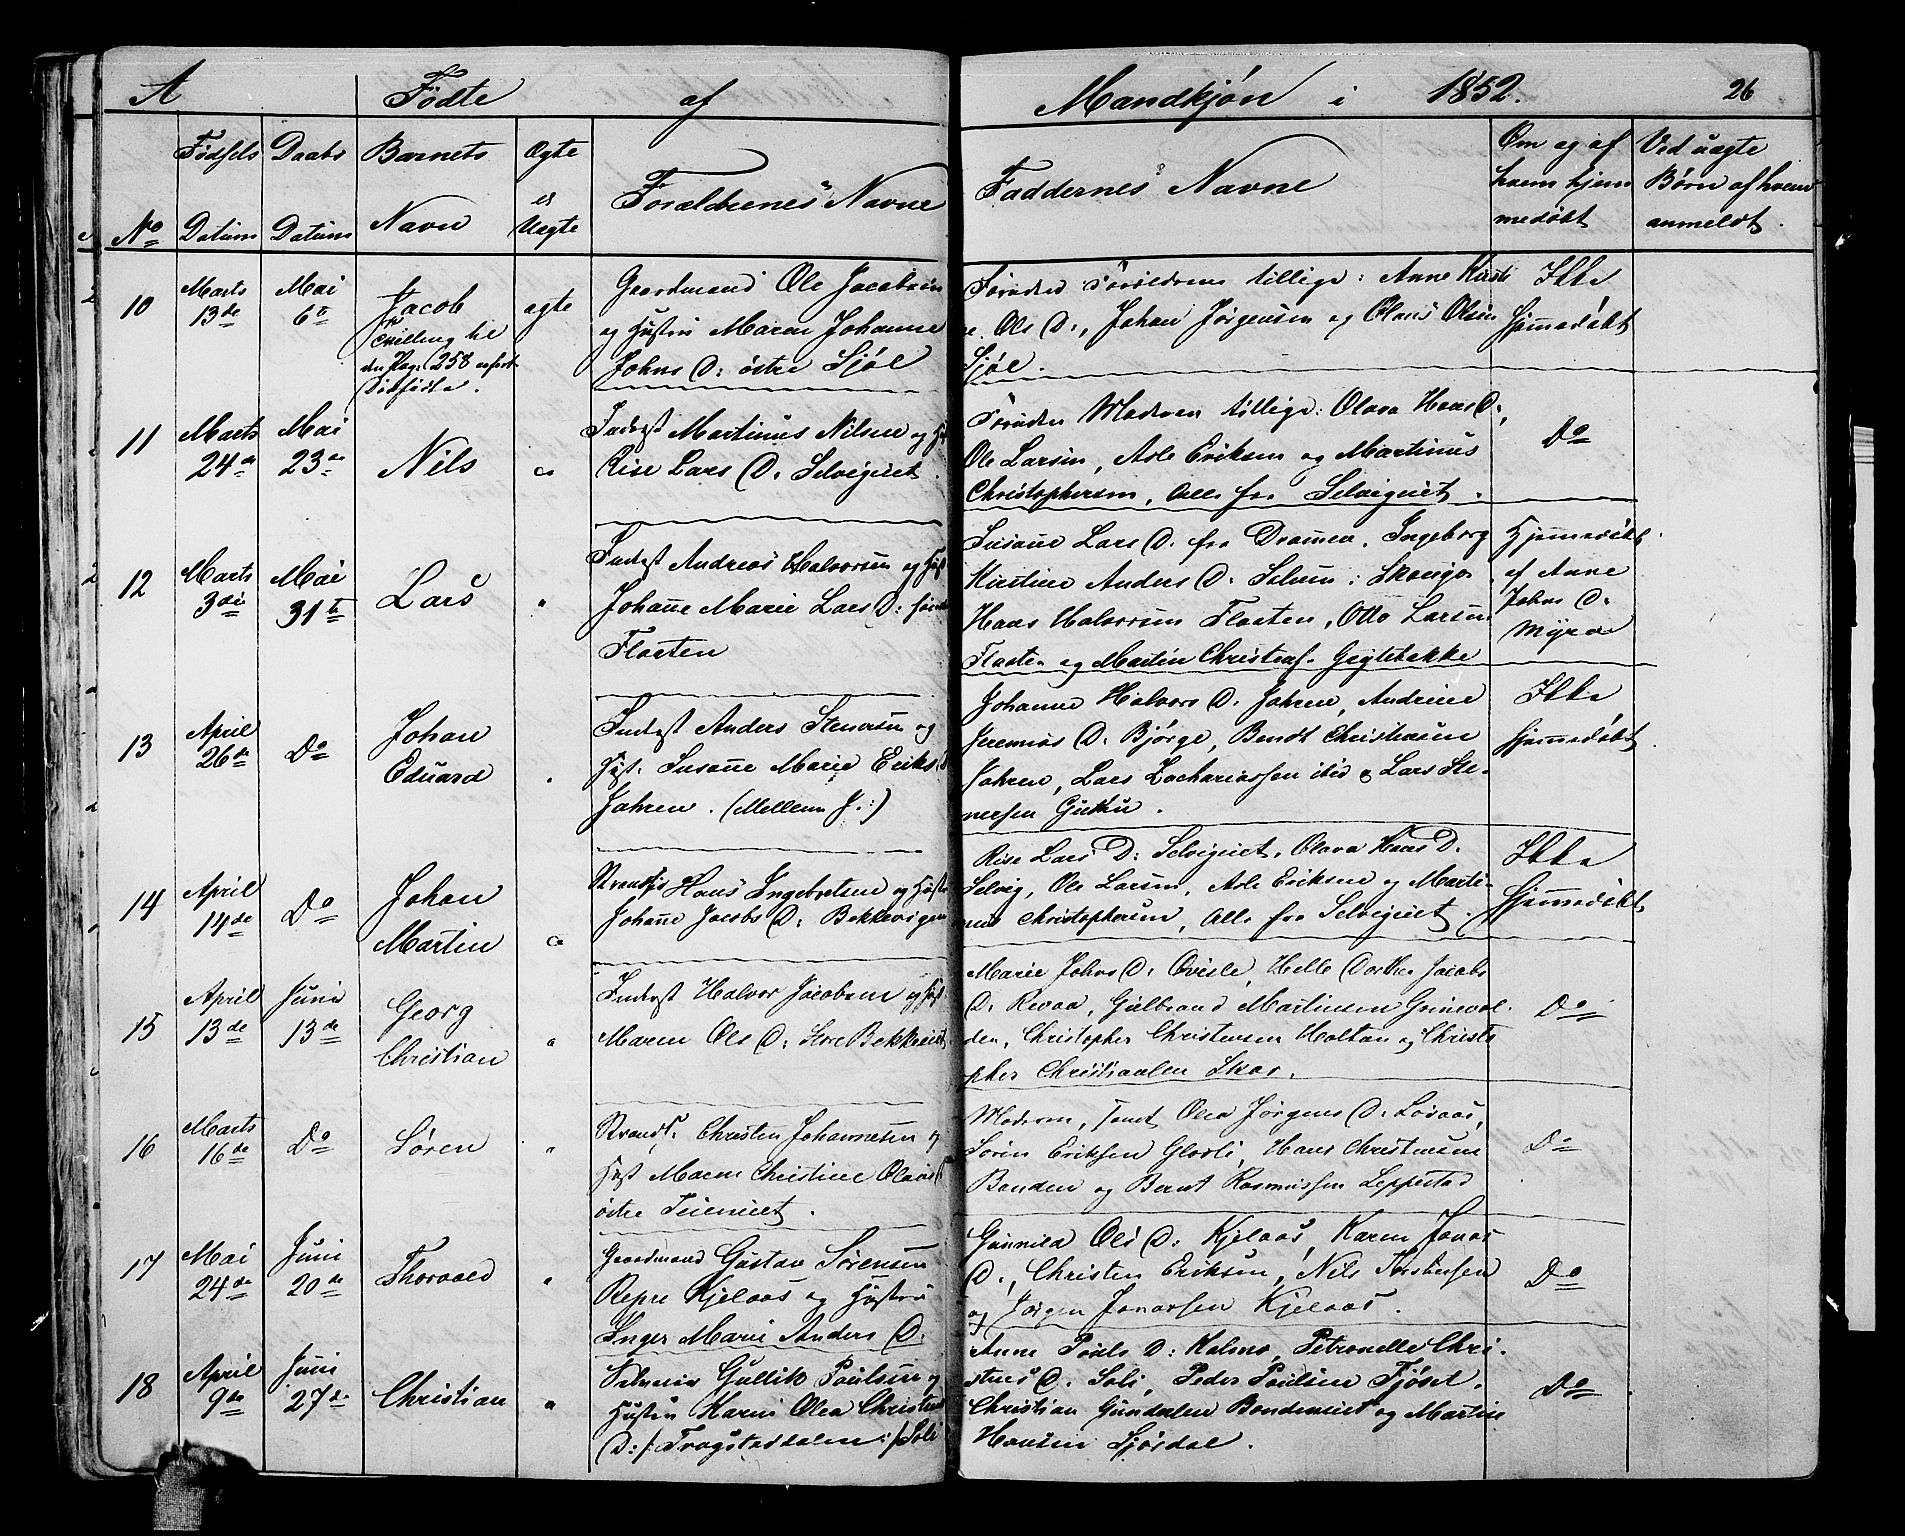 A Fødte af Mandkjøn i 1852. 26
No Fødsels Datum Daabs Datum Barnets Navn Ægte el Uægte Forældrenes Navne Faddernes Navne Om og af hvem hjemmedøbt Ved uægte Børn af hvem anmeldt.
10 Marts 13de Mai 6te Jacob Tvilling til den Pag. 258 ægte
Gaardmand Ole Jacobsen
og Hustru Maren Johanne
Johns D: østre Sjøl
Foruden Forældrene tillige: Anne Kirsti-
ne Ols D:, Johan Jørgensen og Olaus Olsen
Sjøl.
Ikke
Hjemmedøbt
11 Marts 24de Mai 23de Nils
Inderst Martinus Nilsen og
Rise Lars D: Selvigeiet.
Foruden Moderen tillige: Olava Hans D:,
Ole Larsen, Asle Eriksen og Martinus
Christophersen, Alle fra Selvigeiet.
Do
12 Marts 3die Mai 31te Lars "
Inderst Andreas Halvorsen og
Johanne Marie Lars D:
Flaaten
Susanne Lars D. fra Drammen, Ingeborg
Kirstine Anders D:
Hans Halvorsen Flaaten, Otto Larsen
Flaaten og Martin
Hjemmedøbt
af Anne
Johns D:
Myra
13 April 26de Do Johan Eduard "
Inderst Anders Stenersen og
Hust. Susanne Marie Eriks D
Jahren. (Mellem J.:)
Johanne Halvors D. Jahren, Andrine
Jeremias D. Bjørge, Bendt Christiansen
Jahren, Lars Zachariassen ibid & Lars Ste-
nersen
Ikke
Hjemmedøbt
14 April 14de Do Johan Martin
Hans Ingebretsen og Hust
Johanne Jacobs D: Bekkevigen
Rise Lars D: Selvigeiet, Olava Hans D.
Selvig, Ole Larsen, Asle Eriksen og Marti-
nus Christophersen, Alle fra Selvigeiet.
Ikke
Hjemmedøbt
15 April 13de Juni 13de Georg Christian "
Inderst Halvor Jacobsen og Hust
Maren Ols D: Store
Marie Johns D: Helle Dorthe Jacobs
D: Revaa, Gulbrand Martinsen
den, Christopher Christensen Holtan og Christo-
pher Christiansen Skar.
Do
16 Marts 16de Do Søren "
Strands. Christen Johannesen og
Hust Maren Christine Olaves D
østre Teieneiet.
Moderen, samt Olea Jørgens D: Løvaas,
Søren Eriksen Hans Christensen
Bonden og Bernt Rasmussen Leppestad
Do
17 Mai 24de Juni 20de Thorvald "
Gaardmand Gustav Sørensen
Repre Kjelaas og Hustru
Inger Marie Anders D.
Gunnild Ols D: Kjelaas, Karen Jonas
D:, Christen Eriksen, Nils
og Jørgen Jonassen Kjelaas.
Do
18 April 9de Juni 27de Christian "
Gullik Poulsen og
Hustru Karen Olea Christens
D:
Anne Pouls D: Holmo, Petronelle Chri-
stens D. Soli, Peder Poulsen Fjøset.
Christian Gundersen Bondeneiet og Martin
Hansen Sjørdal.
Do